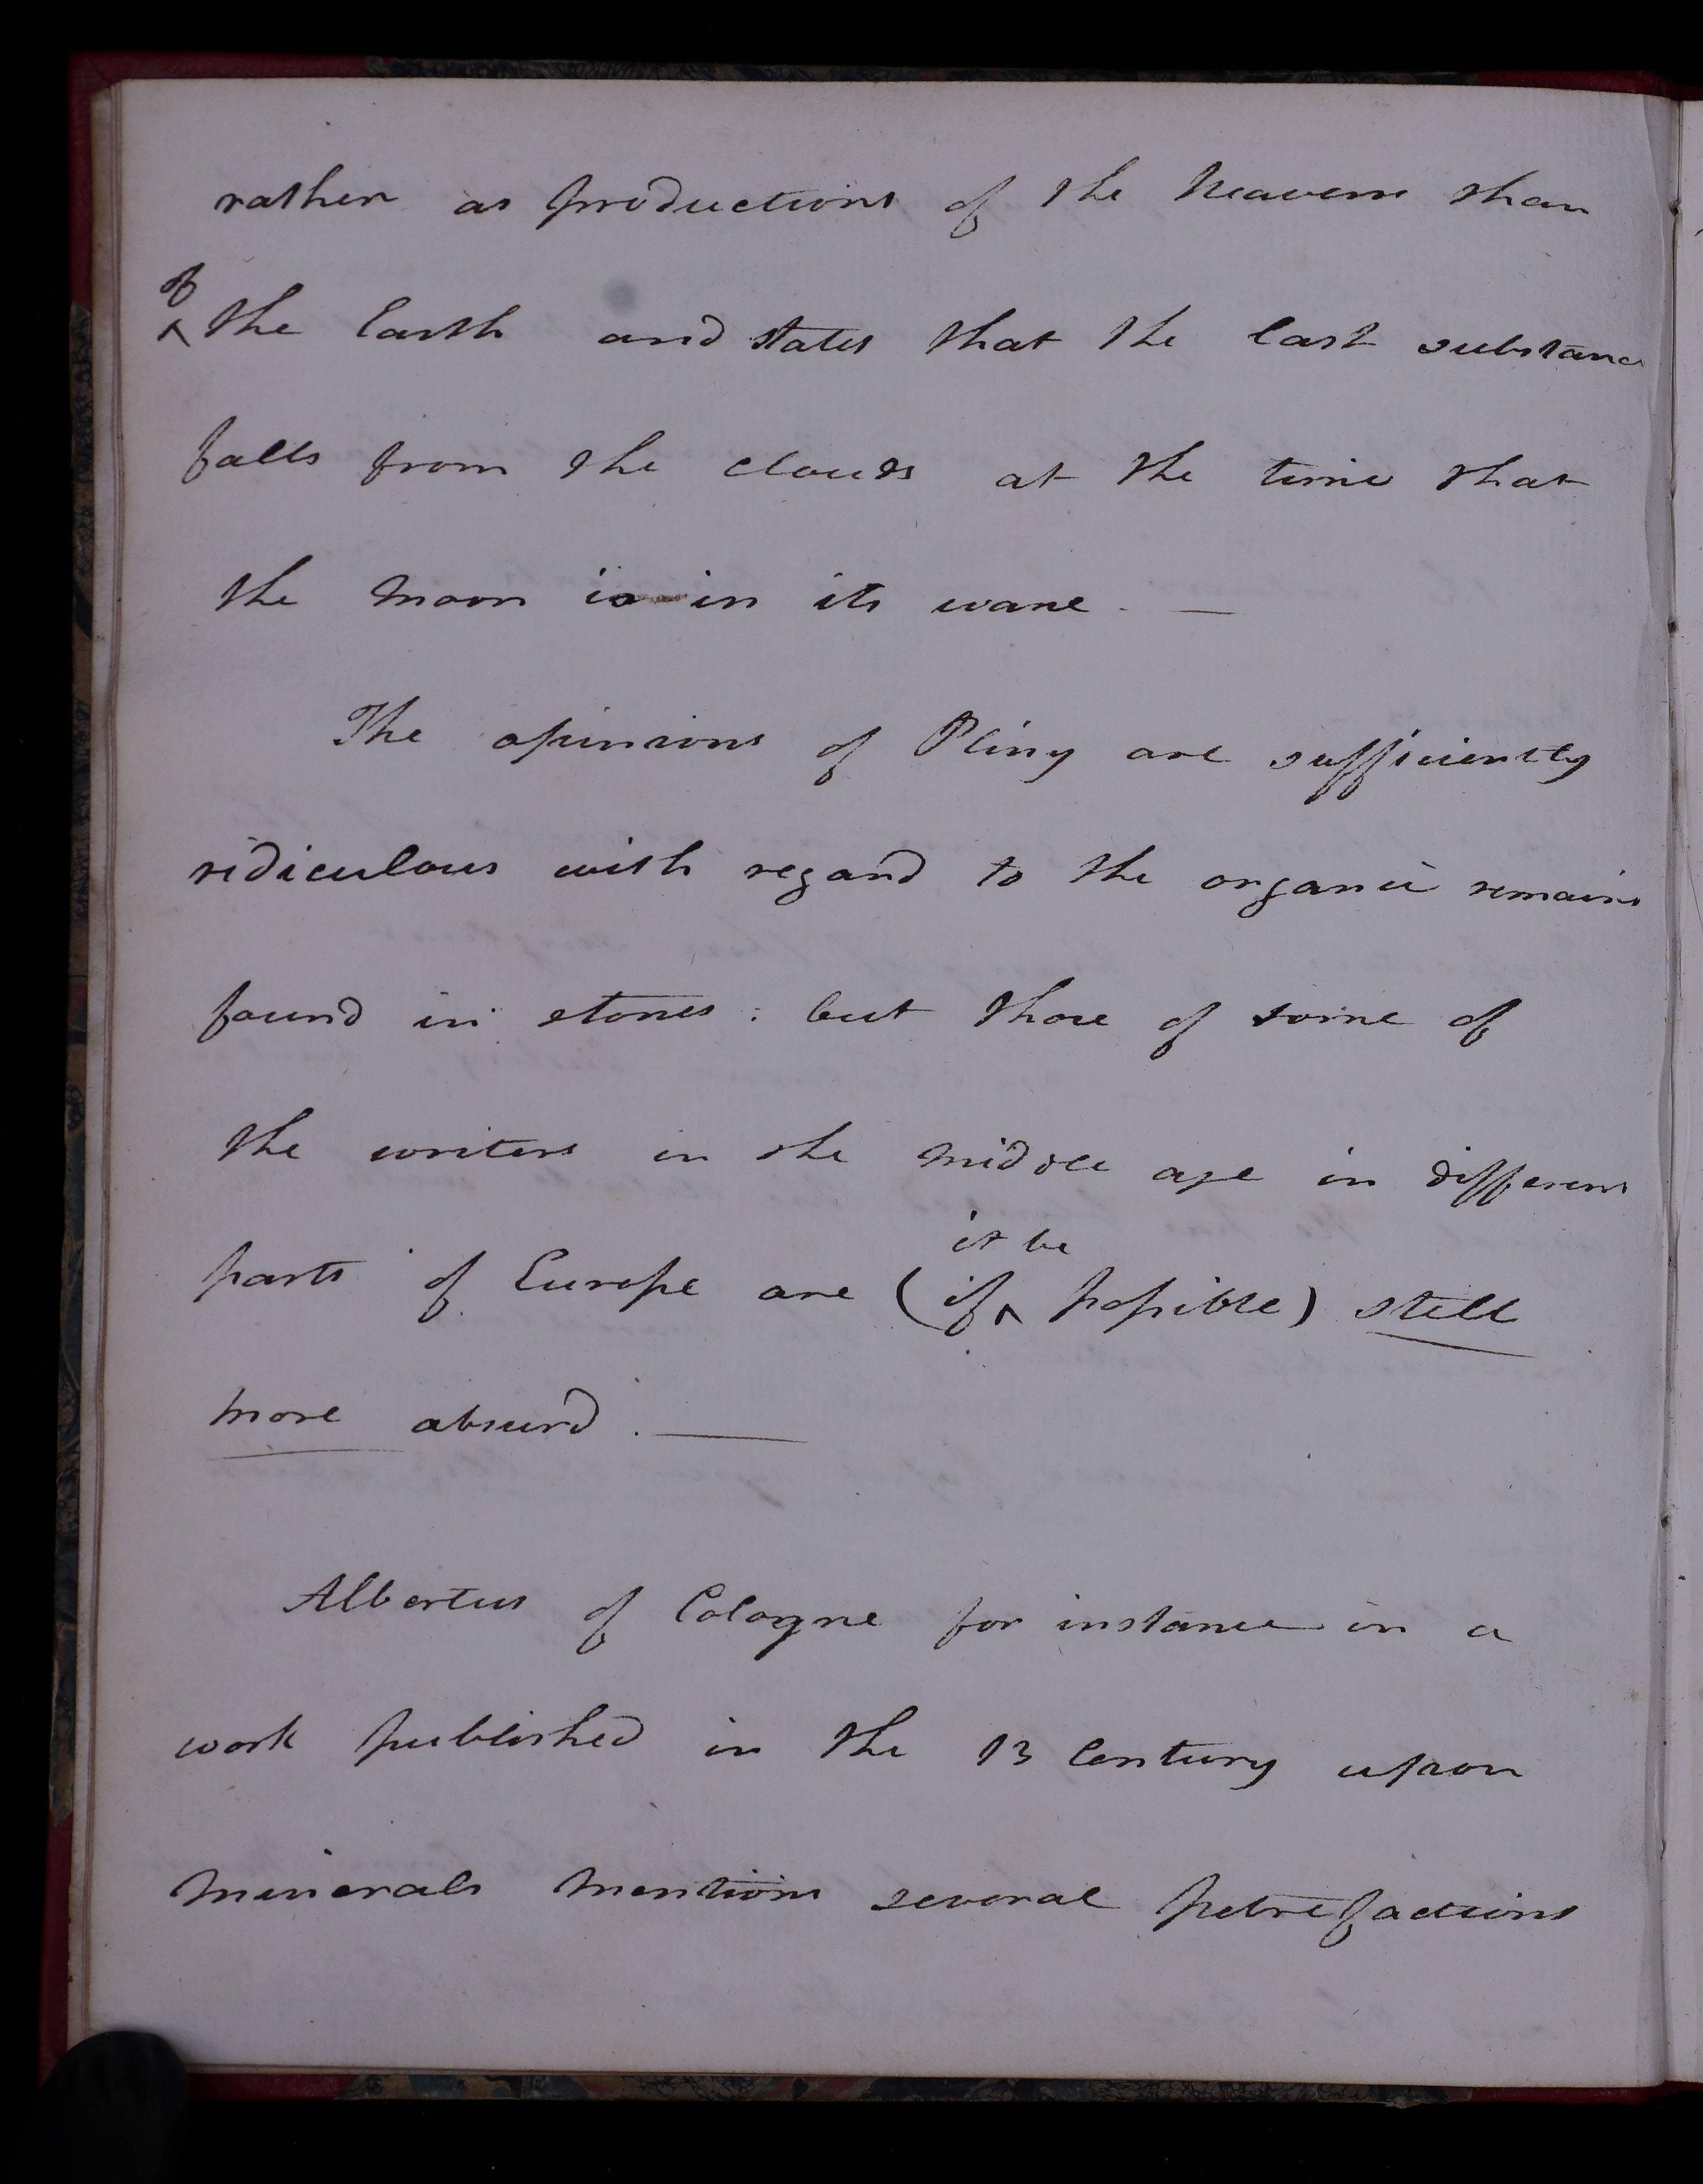 rather as productions of the Heavens than
of
^ the Earth and states that the last substance
falls from the clouds at the time that
the moon is in its wane. —
The opinions of Pliny are sufficiently
ridiculous with regard to the organic remains
found in stones: but those of some of
the writers in the middle age in different
it be
parts of Europe are (if ^ possible) still
more absurd. —
Albertus of Cologne for instance in a
work published in the 13 Century upon
Minerals mentions several petrefactions